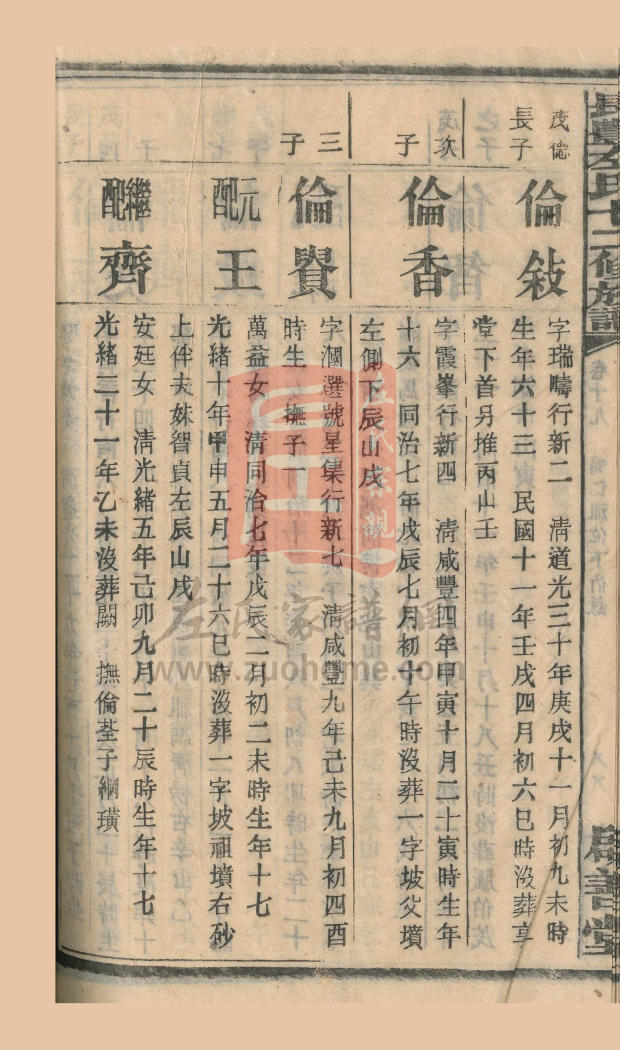 長 左氏十二修族譜
卷十九
茂德
長子
倫敍
字瑞疇行新二 清道光三十年庚戌十一月初九未時
生年六十三 民國十一年壬戌四月初六巳時沒葬享
堂下首另堆丙山壬
茂次
子
倫香
字霞峯行新四 清咸豐四年甲寅十月二十寅時生年
十六 同治七年戊辰七月初十午時沒葬一字坡父墳
左側下辰山戌
三
子
倫賢
字 選號星集行新七 清咸豐九年己未九月初四酉
時生 撫子一
元配
王
萬益女 清同治七年戊辰二月初二未時生年十七
光緒十年甲申五月二十六巳時沒葬一字坡祖墳右砂
上伴夫妹智貞左辰山戌
繼配
齊
安廷女 清光緒五年己卯九月二十辰時生年十七
光緒二十一年乙未沒葬闕 撫倫荃子綱璜
左氏家譜網
www.zuohome.com